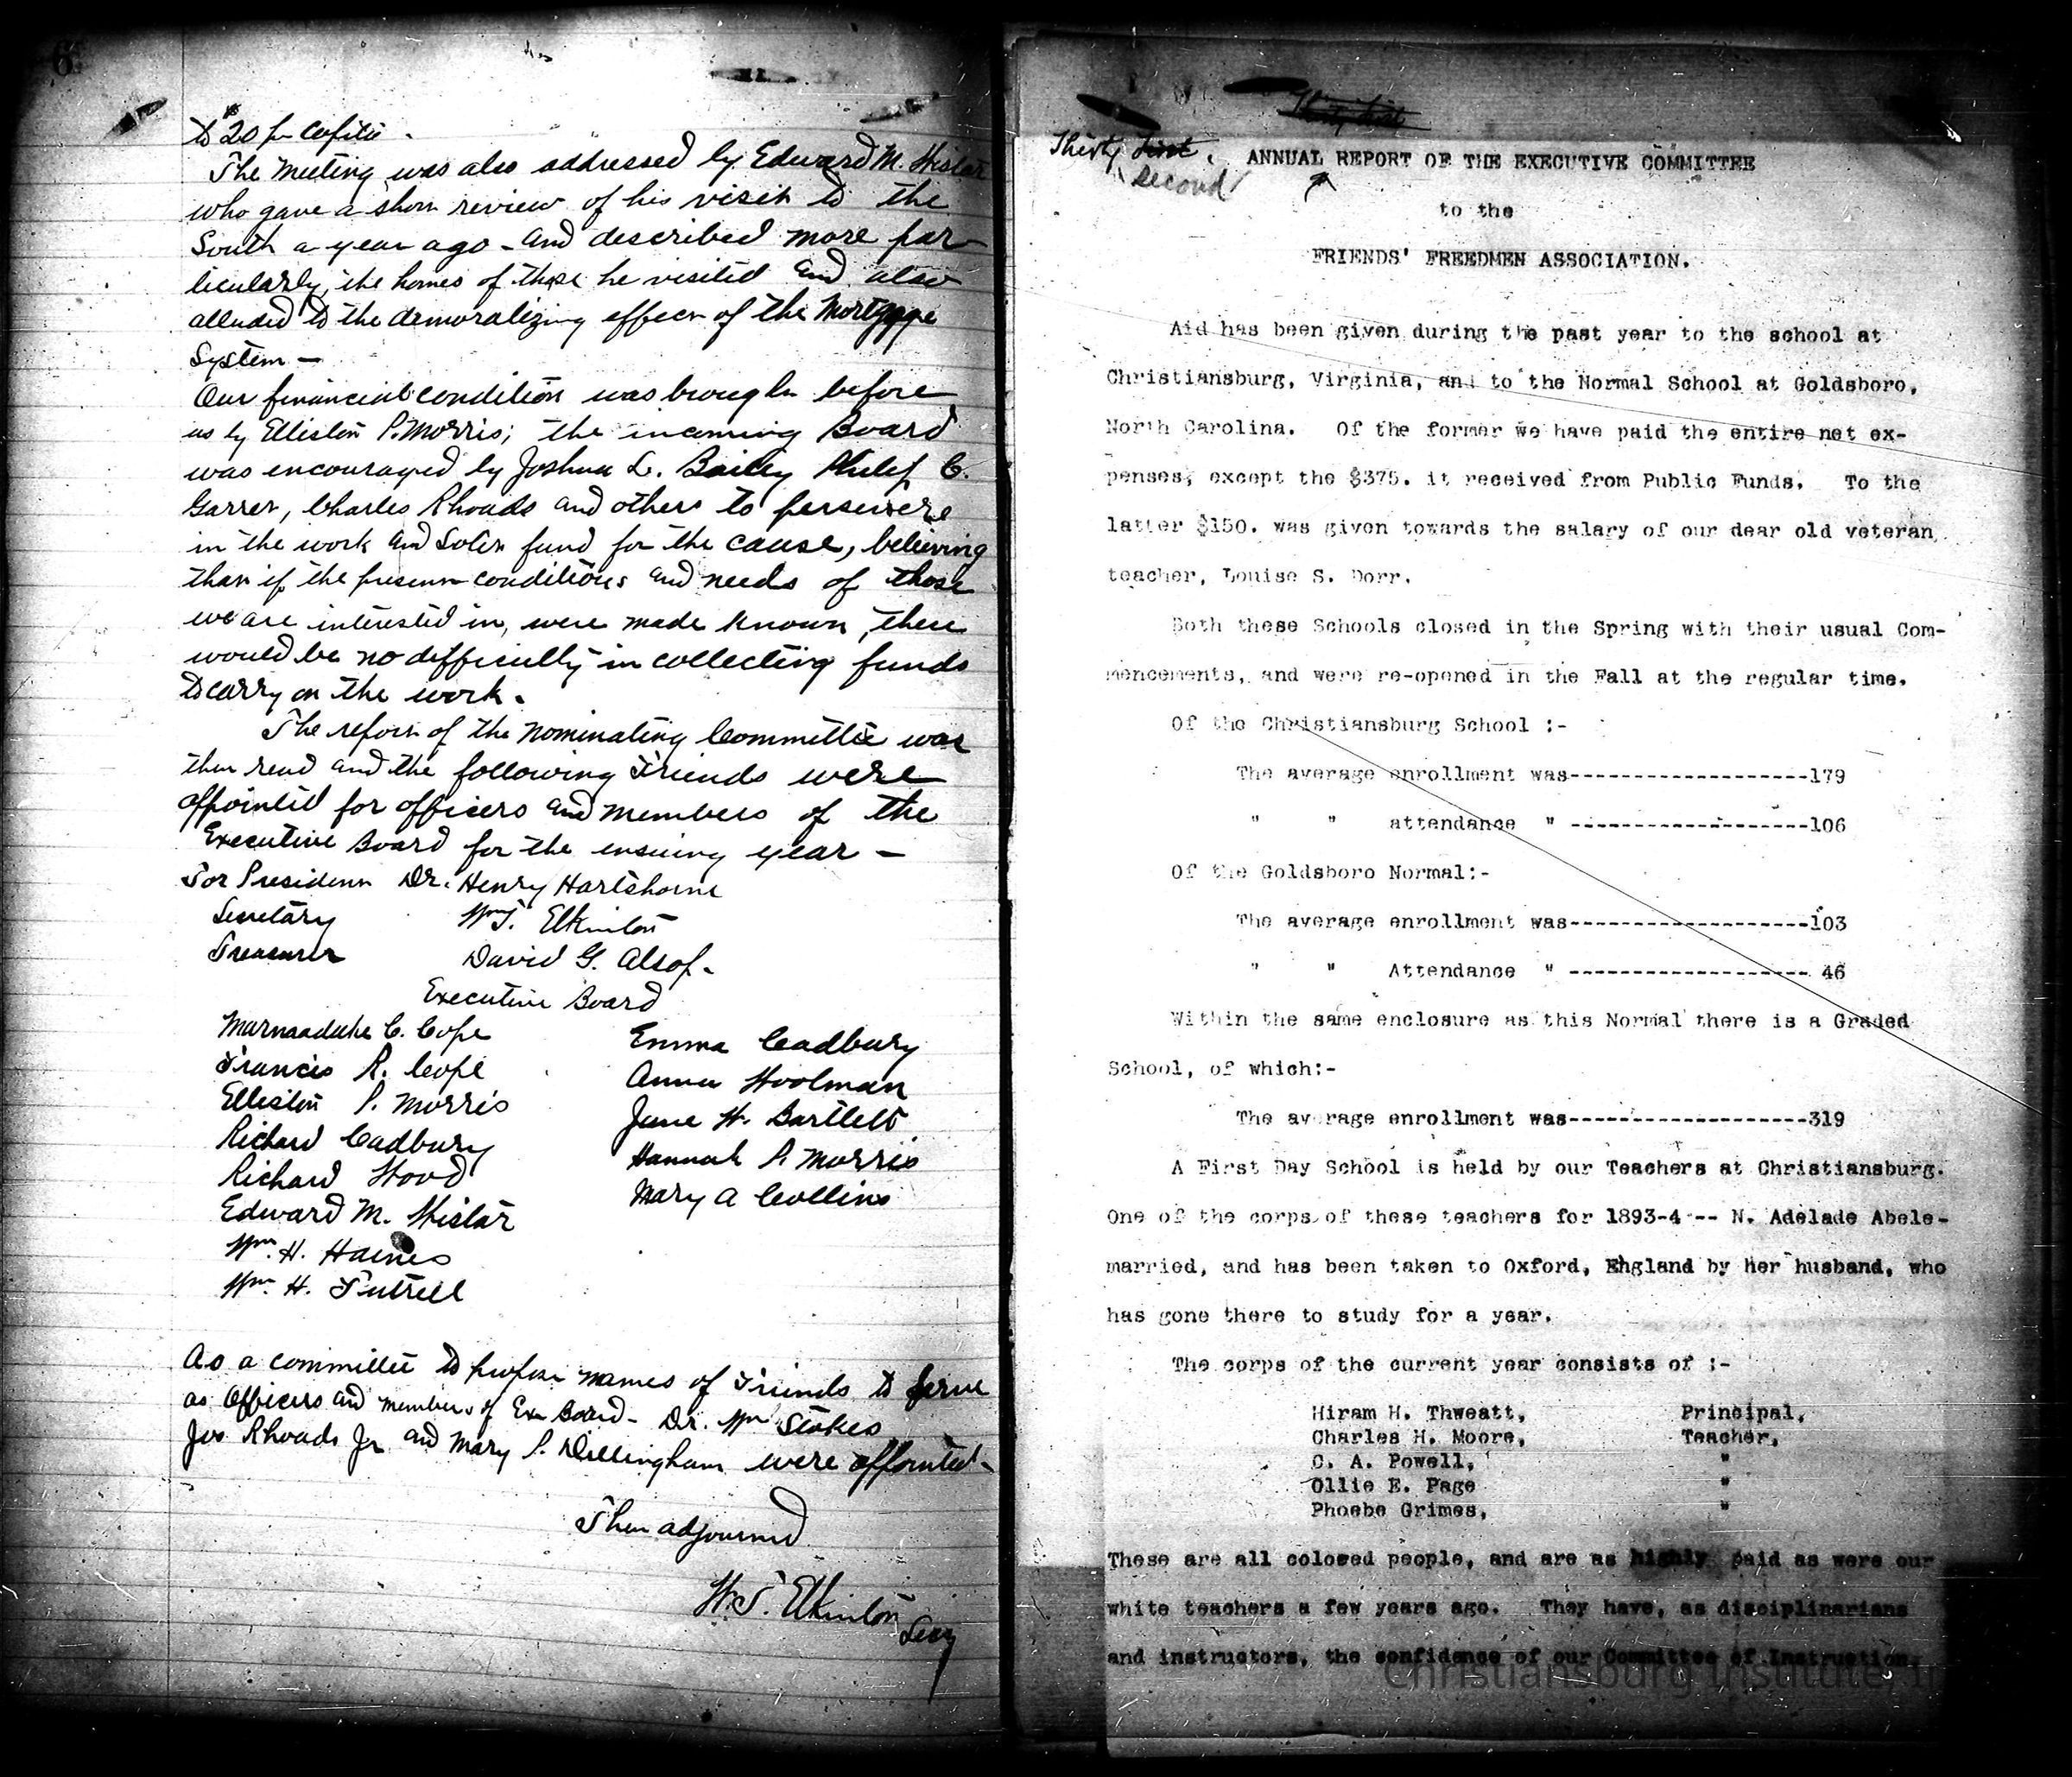 6
to $20 per Capita.
The meeting was also addressed by Edward M. Wistar
who gave a short review of his visit to the
South a year ago - and described more par-
ticularly, the homes of those he visited and also
alluded to the demoralizing effect of the Mortgage
System —
Our financial condition was brought before
us by Elliston P. Morris; the incoming Board
was encouraged by Joshua L. Bailey Philip C.
Garrett, Charles Rhoads and others to persevere
in the work and Solicit fund for the cause, believing
that if the present conditions and needs of those
we are interested in, were made known, there
would be no difficulty in collecting funds
to carry on the work.
The report of the nominating Committee was
then read and the following Friends were
appointed for officers and members of the
Executive Board for the ensuing year —
For President Dr. Henry Hartshorne
Secretary Wm T. Elkinton
Treasurer David G. Alsop.
Executive Board
Marmaduke C. Cope
Francis R. Cope
Elliston P. Morris
Richard Cadbury
Richard Wood
Edward M. Wistar
Wm. H. Haines
Wm. H. Futrell
Emma Cadbury
Anna Woolman
Jane W. Bartlett
Hannah P. Morris
Mary A Collins
As a committee to propose names of Friends to serve
as Officers and members of Ex Board - Dr. Wm Stokes
Jos Rhoads Jr and Mary P. Dillingham were appointed -
Then adjourned
W. T. Elkinton
Secy
Thirty First
Thirty First. ANNUAL REPORT OF THE EXECUTIVE COMMITTEE
second
to the
FRIENDS' FREEDMEN ASSOCIATION.
Aid has been given during the past year to the school at
Christiansburg, Virginia, and to the Normal School at Goldsboro,
North Carolina. Of the former we have paid the entire net ex-
penses, except the $375. it received from Public Funds. To the
latter $150. was given towards the salary of our dear old veteran
teacher, Louise S. Dorr.
Both these Schools closed in the Spring with their usual Com-
mencements, and were re-opened in the Fall at the regular time.
Of the Christiansburg School :-
The average enrollment was-------------------179
" " attendance " -------------------106
Of the Goldsboro Normal:-
The average enrollment was-------------------103
" " Attendance " ------------------- 46
Within the same enclosure as this Normal there is a Graded
School, of which:-
The average enrollment was-------------------319
A First Day School is held by our Teachers at Christiansburg.
One of the corps of these teachers for 1893-4 -- N. Adelade Abele-
married, and has been taken to Oxford, Ehgland by her husband, who
has gone there to study for a year.
The corps of the current year consists of :-
Hiram H. Thweatt, Principal,
Charles H. Moore, Teacher,
C. A. Powell, "
Ollie E. Page "
Phoebe Grimes, "
These are all colored people, and are as highly paid as were our
white teachers a few years ago. They have, as disciplinarians
and instructors, the confidence of our Committee of Instruction,
Christiansburg Institute, I